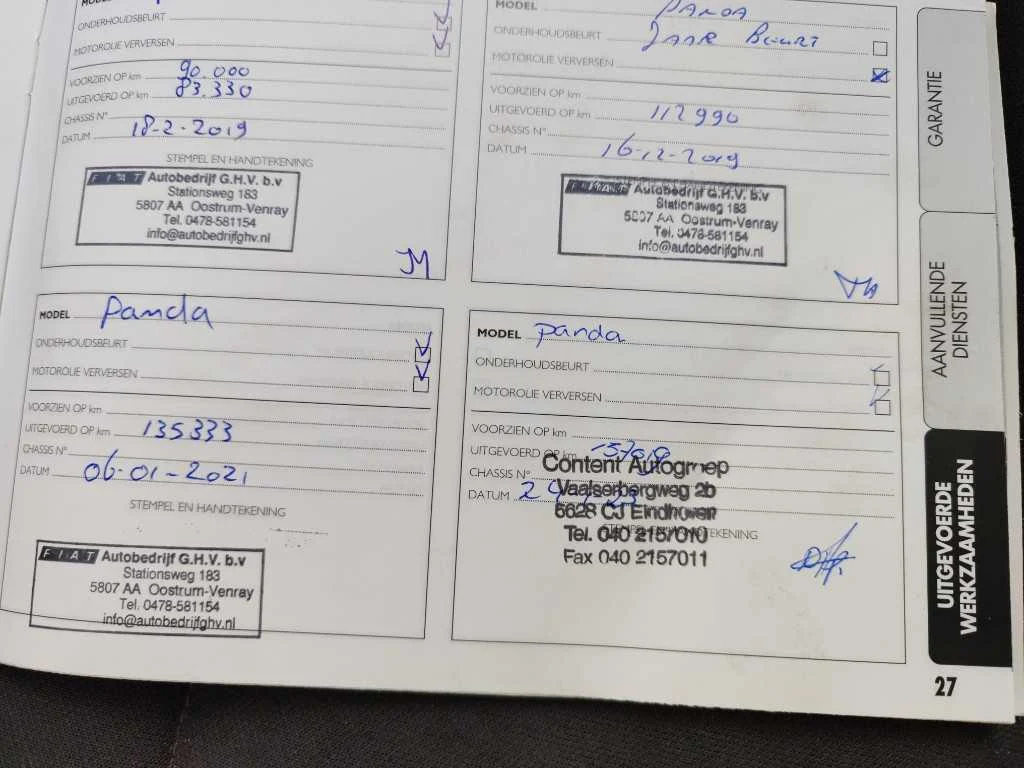 ONDERHOUDSBEURT
MOTOROLIE VERVERSEN
VOORZIEN OP km 90.000
UITGEVOERD OP km 83.330
CHASSIS N°
DATUM 18-2-2019
STEMPEL EN HANDTEKENING
FIAT Autobedrijf G.H.V. b.v
Stationsweg 183
5807 AA Oostrum-Venray
Tel. 0478-581154
info@autobedrijfghv.nl
MODEL PANDA
ONDERHOUDSBEURT JAAR BEURT
MOTOROLIE VERVERSEN
VOORZIEN OP km
UITGEVOERD OP km 112990
CHASSIS N°
DATUM 16-12-2019
FIAT Autobedrijf G.H.V. b.v
Stationsweg 183
5807 AA Oostrum-Venray
Tel. 0478-581154
info@autobedrijfghv.nl
MODEL Panda
ONDERHOUDSBEURT
MOTOROLIE VERVERSEN
VOORZIEN OP km
UITGEVOERD OP km 135333
CHASSIS N°
DATUM 06-01-2021
STEMPEL EN HANDTEKENING
FIAT Autobedrijf G.H.V. b.v
Stationsweg 183
5807 AA Oostrum-Venray
Tel. 0478-581154
info@autobedrijfghv.nl
MODEL panda
ONDERHOUDSBEURT
MOTOROLIE VERVERSEN
VOORZIEN OP km
UITGEVOERD OP km
CHASSIS N°
DATUM
STEMPEL EN HANDTEKENING
Content Autogroep
Vaalserbergweg 2b
5628 CJ Eindhoven
Tel. 040 2157010
Fax 040 2157011
GARANTIE
AANVULLENDE
DIENSTEN
UITGEVOERDE
WERKZAAMHEDEN
27